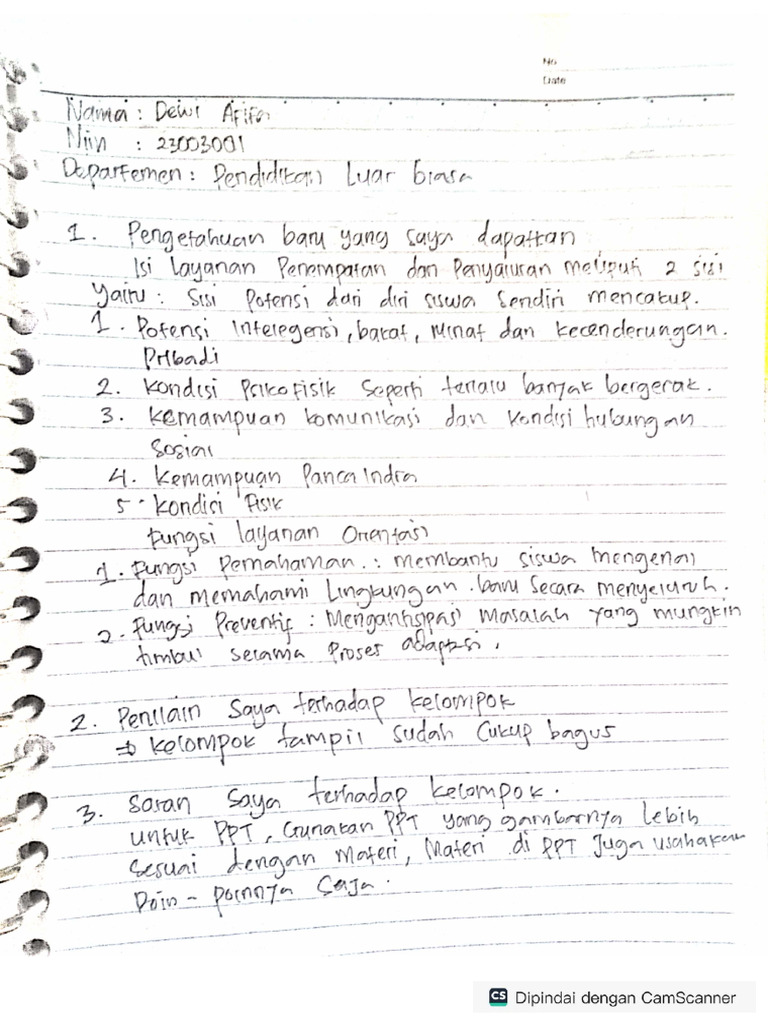 No
Date
Nama : Dewi Afifa
Nim : 23003001
Departemen : Pendidikan Luar biasa
1. Pengetahuan baru yang saya dapatkan
Isi layanan Penempatan dan Penyaluran meliputi 2 sisi
yaitu : Sisi Potensi dari diri siswa sendiri mencakup.
1. Potensi Intelegensi, bakat, minat dan kecenderungan.
Pribadi
2. Kondisi Psikofisik seperti terlalu banyak bergerak.
3. Kemampuan komunikasi dan kondisi hubungan
Sosial
4. Kemampuan Panca Indra
5. kondisi Fisik
Fungsi layanan Orientasi
1. Fungsi Pemahaman : membantu siswa mengenal
dan memahami Lingkungan baru secara menyeluruh.
2. Fungsi Preventif : Mengantisipasi masalah yang mungkin
timbul selama Proses adaptasi.
2. Penilain Saya terhadap kelompok
→ kelompok tampil sudah cukup bagus
3. Saran Saya terhadap kelompok.
untuk PPT, Gunakan PPT yang gambarnya lebih
sesuai dengan materi, Materi di PPT Juga usahakan
Poin - poinnya saja.
CS Dipindai dengan CamScanner